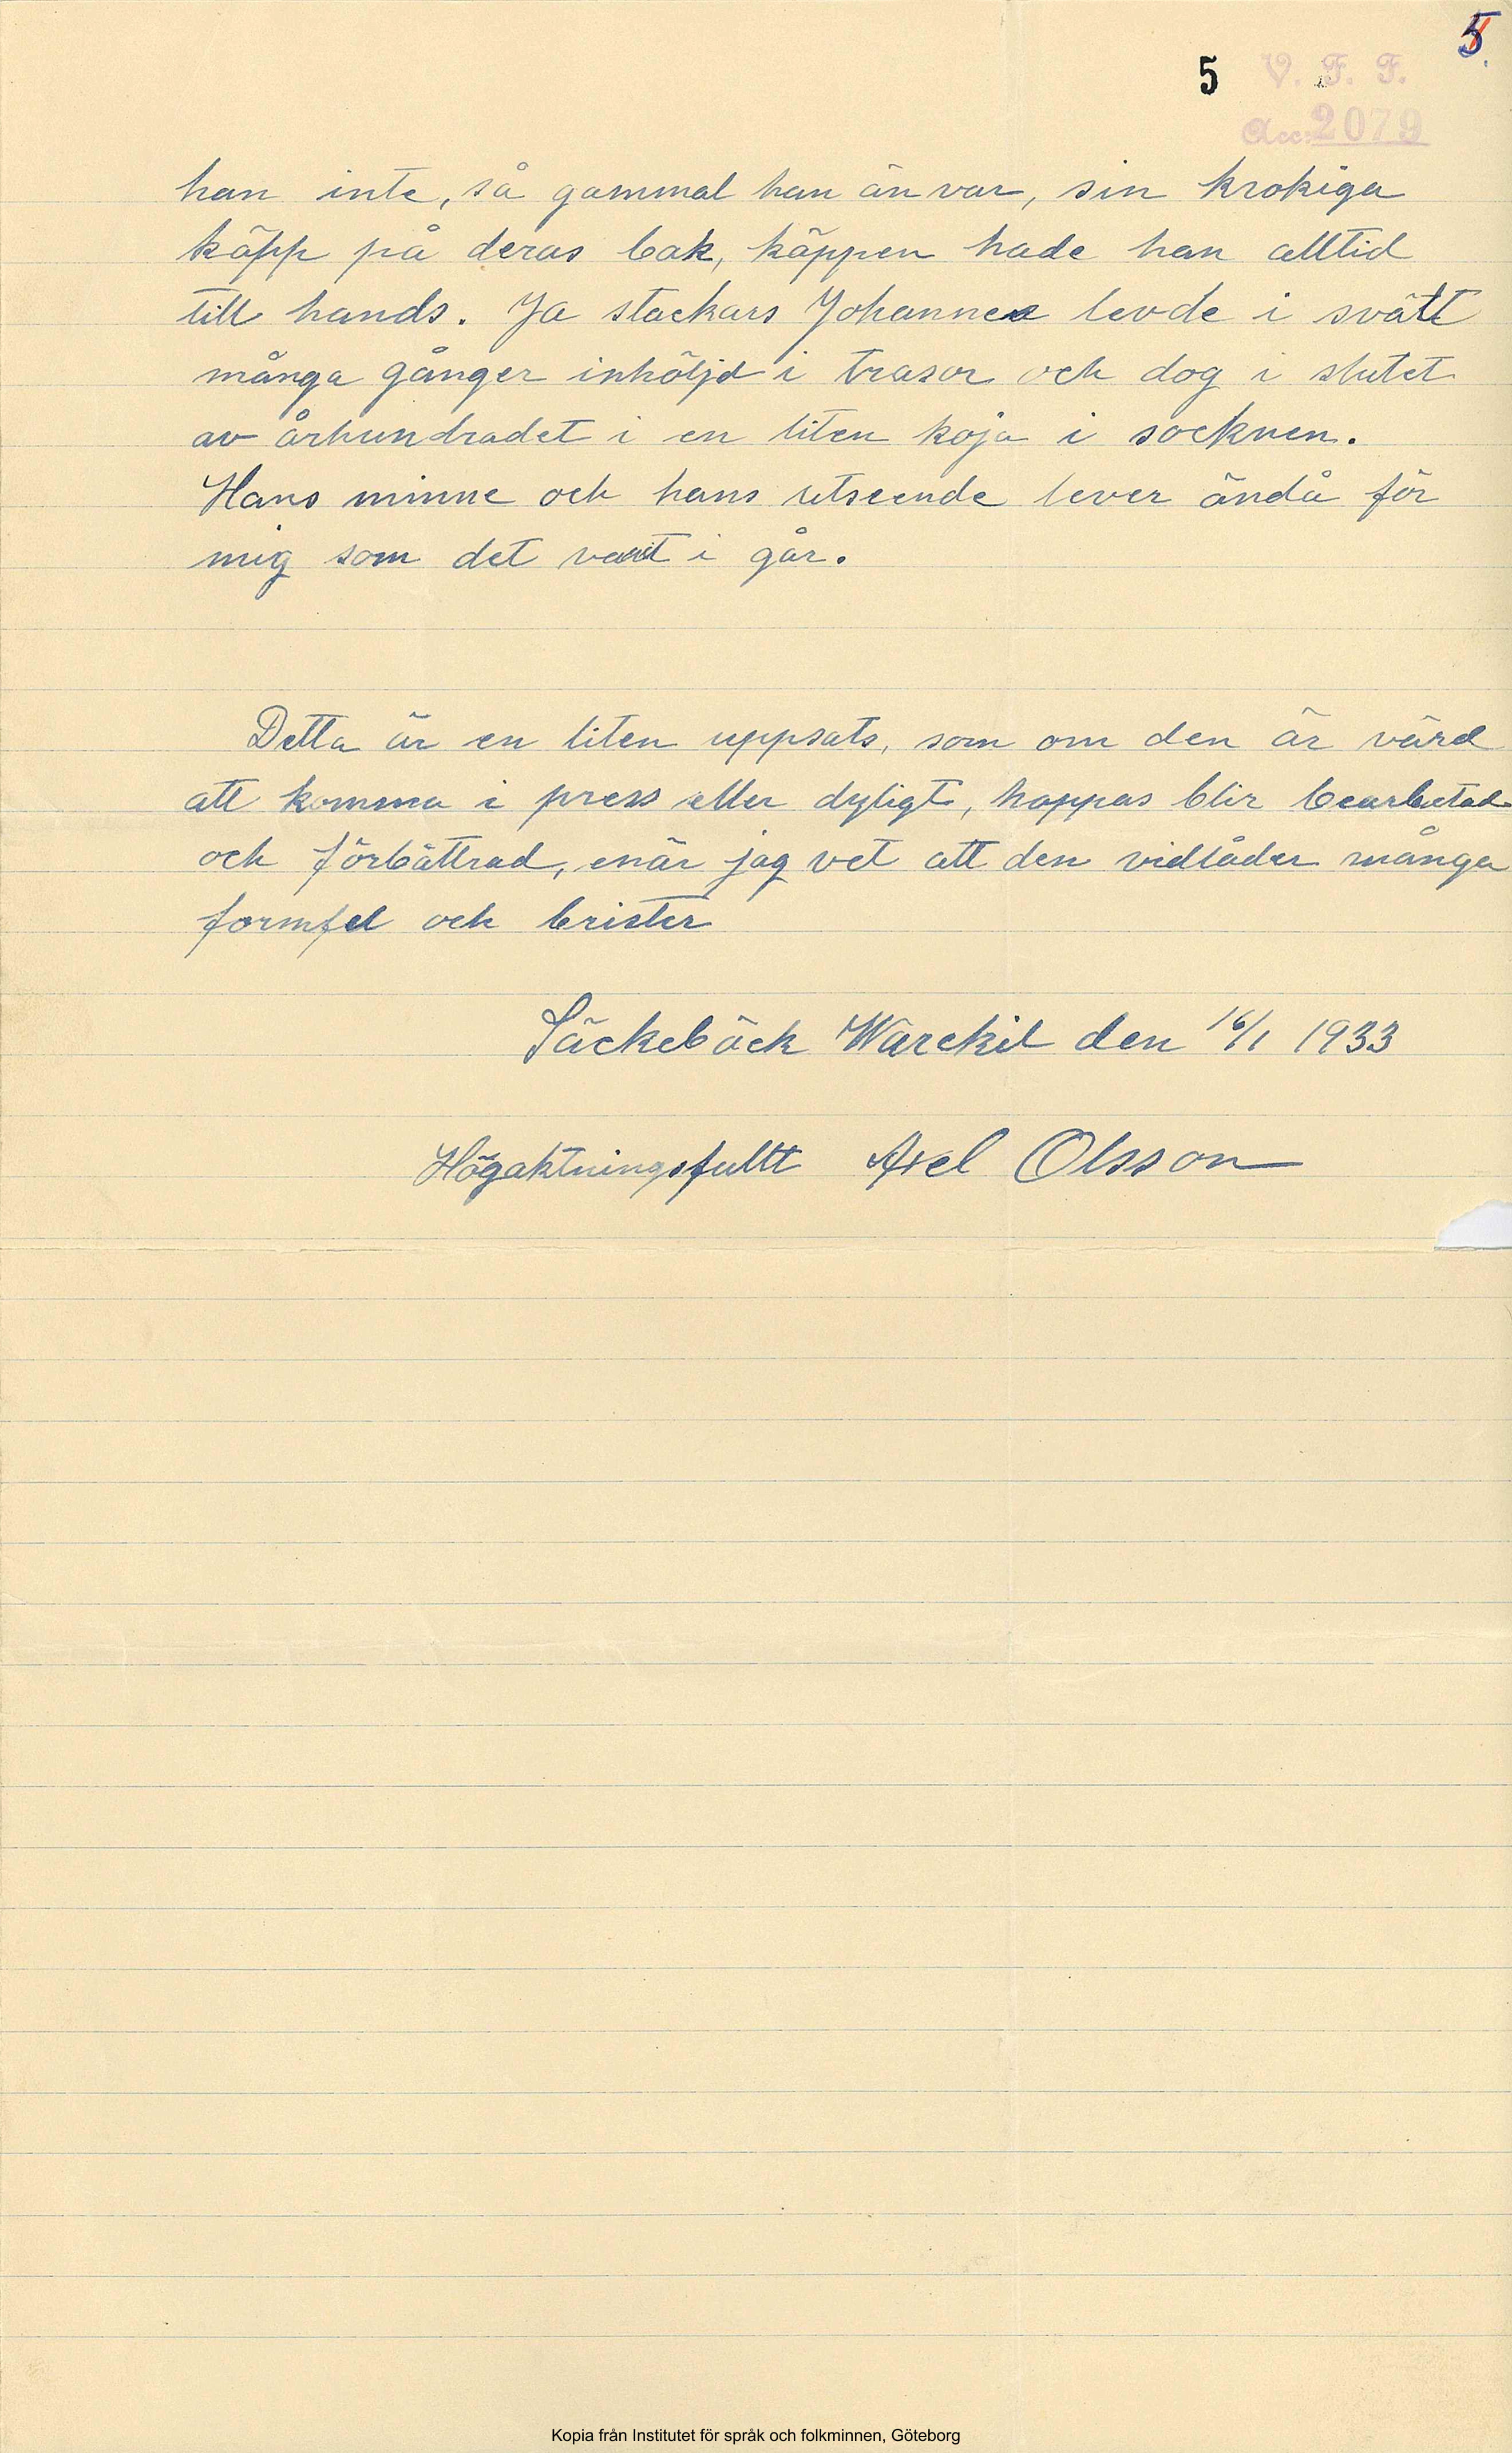 5
5 V. F. F.
Acc: 2079
han inte, så gammal han än var, sin krokiga
käpp på deras bak, käppen hade han alltid
till hands. Ja stackars Johannes levde i svält
många gånger inhöljd i trasor och dog i slutet
av århundradet i en liten koja i socknen.
Hans minne och hans utseende lever ändå för
mig som det varit i går.
Detta är en liten uppsats, som om den är värd
att komma i press eller dyligt, hoppas blir bearbetad
och förbättrad, enär jag vet att den vidlåder många
formfel och brister
Säckebäck Warekil den 16/1 1933
Högaktningsfullt Axel Olsson
Kopia från Institutet för språk och folkminnen, Göteborg